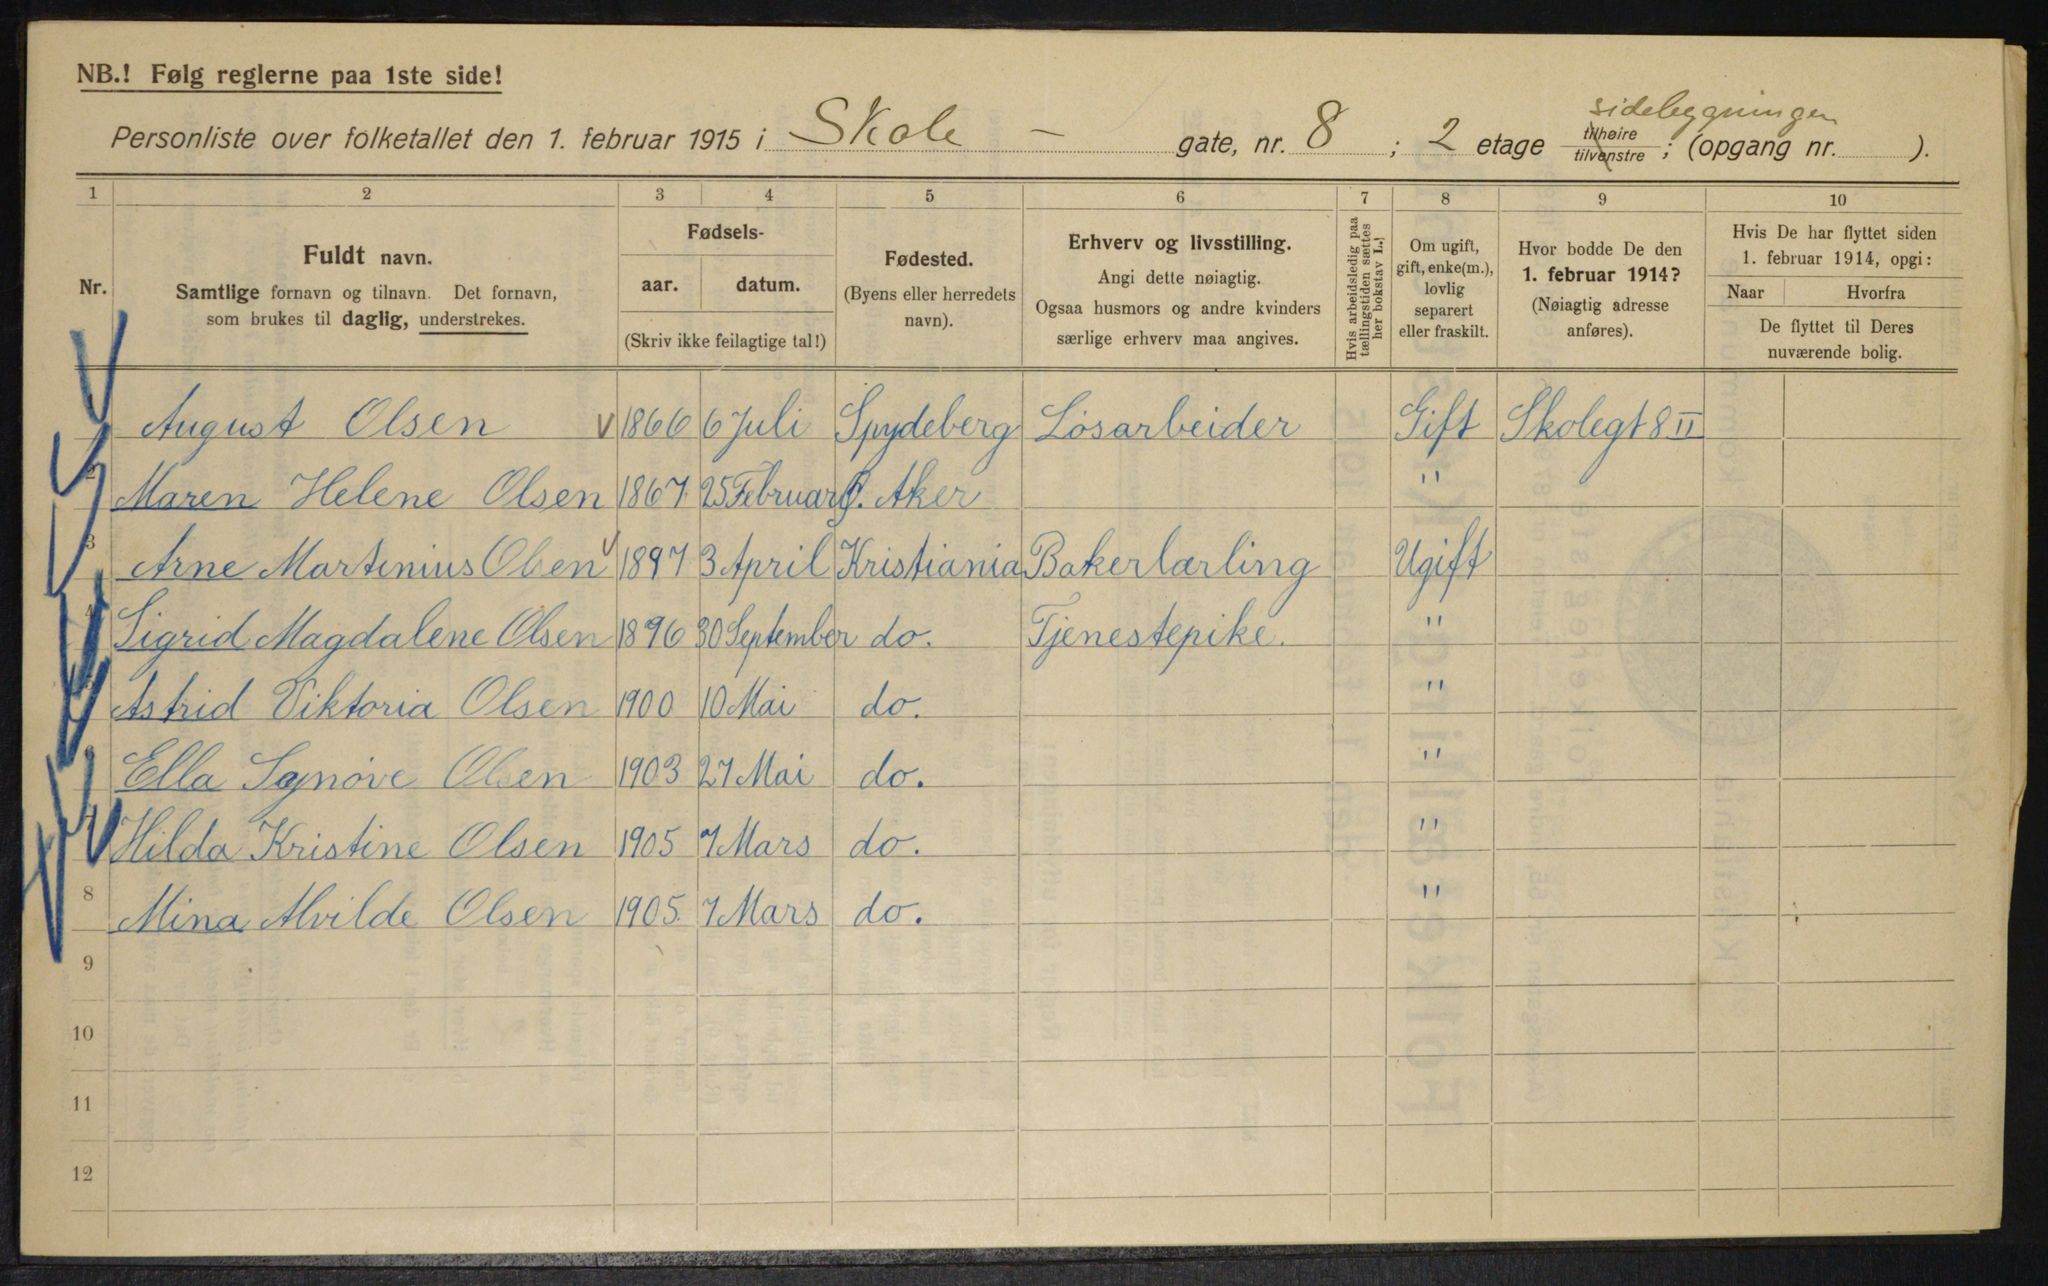 NB.! Følg reglerne paa 1ste side!
sidebygningen
Personliste over folketallet den 1. februar 1915 i Skole - gate, nr. 8 ; 2 etage tilhøire tilvenstre ; (opgang nr. ).
1 2 3 4 5 6 7 8 9 10
Nr.
Fuldt navn.
Samtlige fornavn og tilnavn. Det fornavn,
som brukes til daglig, understrekes.
Fødsels-
aar. datum.
(Skriv ikke feilagtige tal!)
Fødested.
(Byens eller herredets
navn).
Erhverv og livsstilling.
Angi dette nøiagtig.
Ogsaa husmors og andre kvinders
særlige erhverv maa angives.
Hvis arbeidsledig paa
tællingstiden sættes
her bokstav L.!
Om ugift,
gift, enke(m.),
lovlig
separert
eller fraskilt.
Hvor bodde De den
1. februar 1914?
(Nøiagtig adresse
anføres).
Hvis De har flyttet siden
1. februar 1914, opgi:
Naar Hvorfra
De flyttet til Deres
nuværende bolig.
August Olsen 1866 6 Juli Spydeberg Løsarbeider Gift Skolegt 8 II
2 Maren Helene Olsen 1867 25 Februar Ø. Aker "
3 Arne Martinius Olsen 1897 3 April Kristiania Bakerlærling Ugift
4 Sigrid Magdalene Olsen 1896 30 September do. Tjenestepike. "
Astrid Viktoria Olsen 1900 10 Mai do. "
6 Ella Synøve Olsen 1903 27 Mai do. "
7 Hilda Kristine Olsen 1905 7 Mars do. "
8 Mina Alvilde Olsen 1905 7 Mars do. "
9
10
11
12